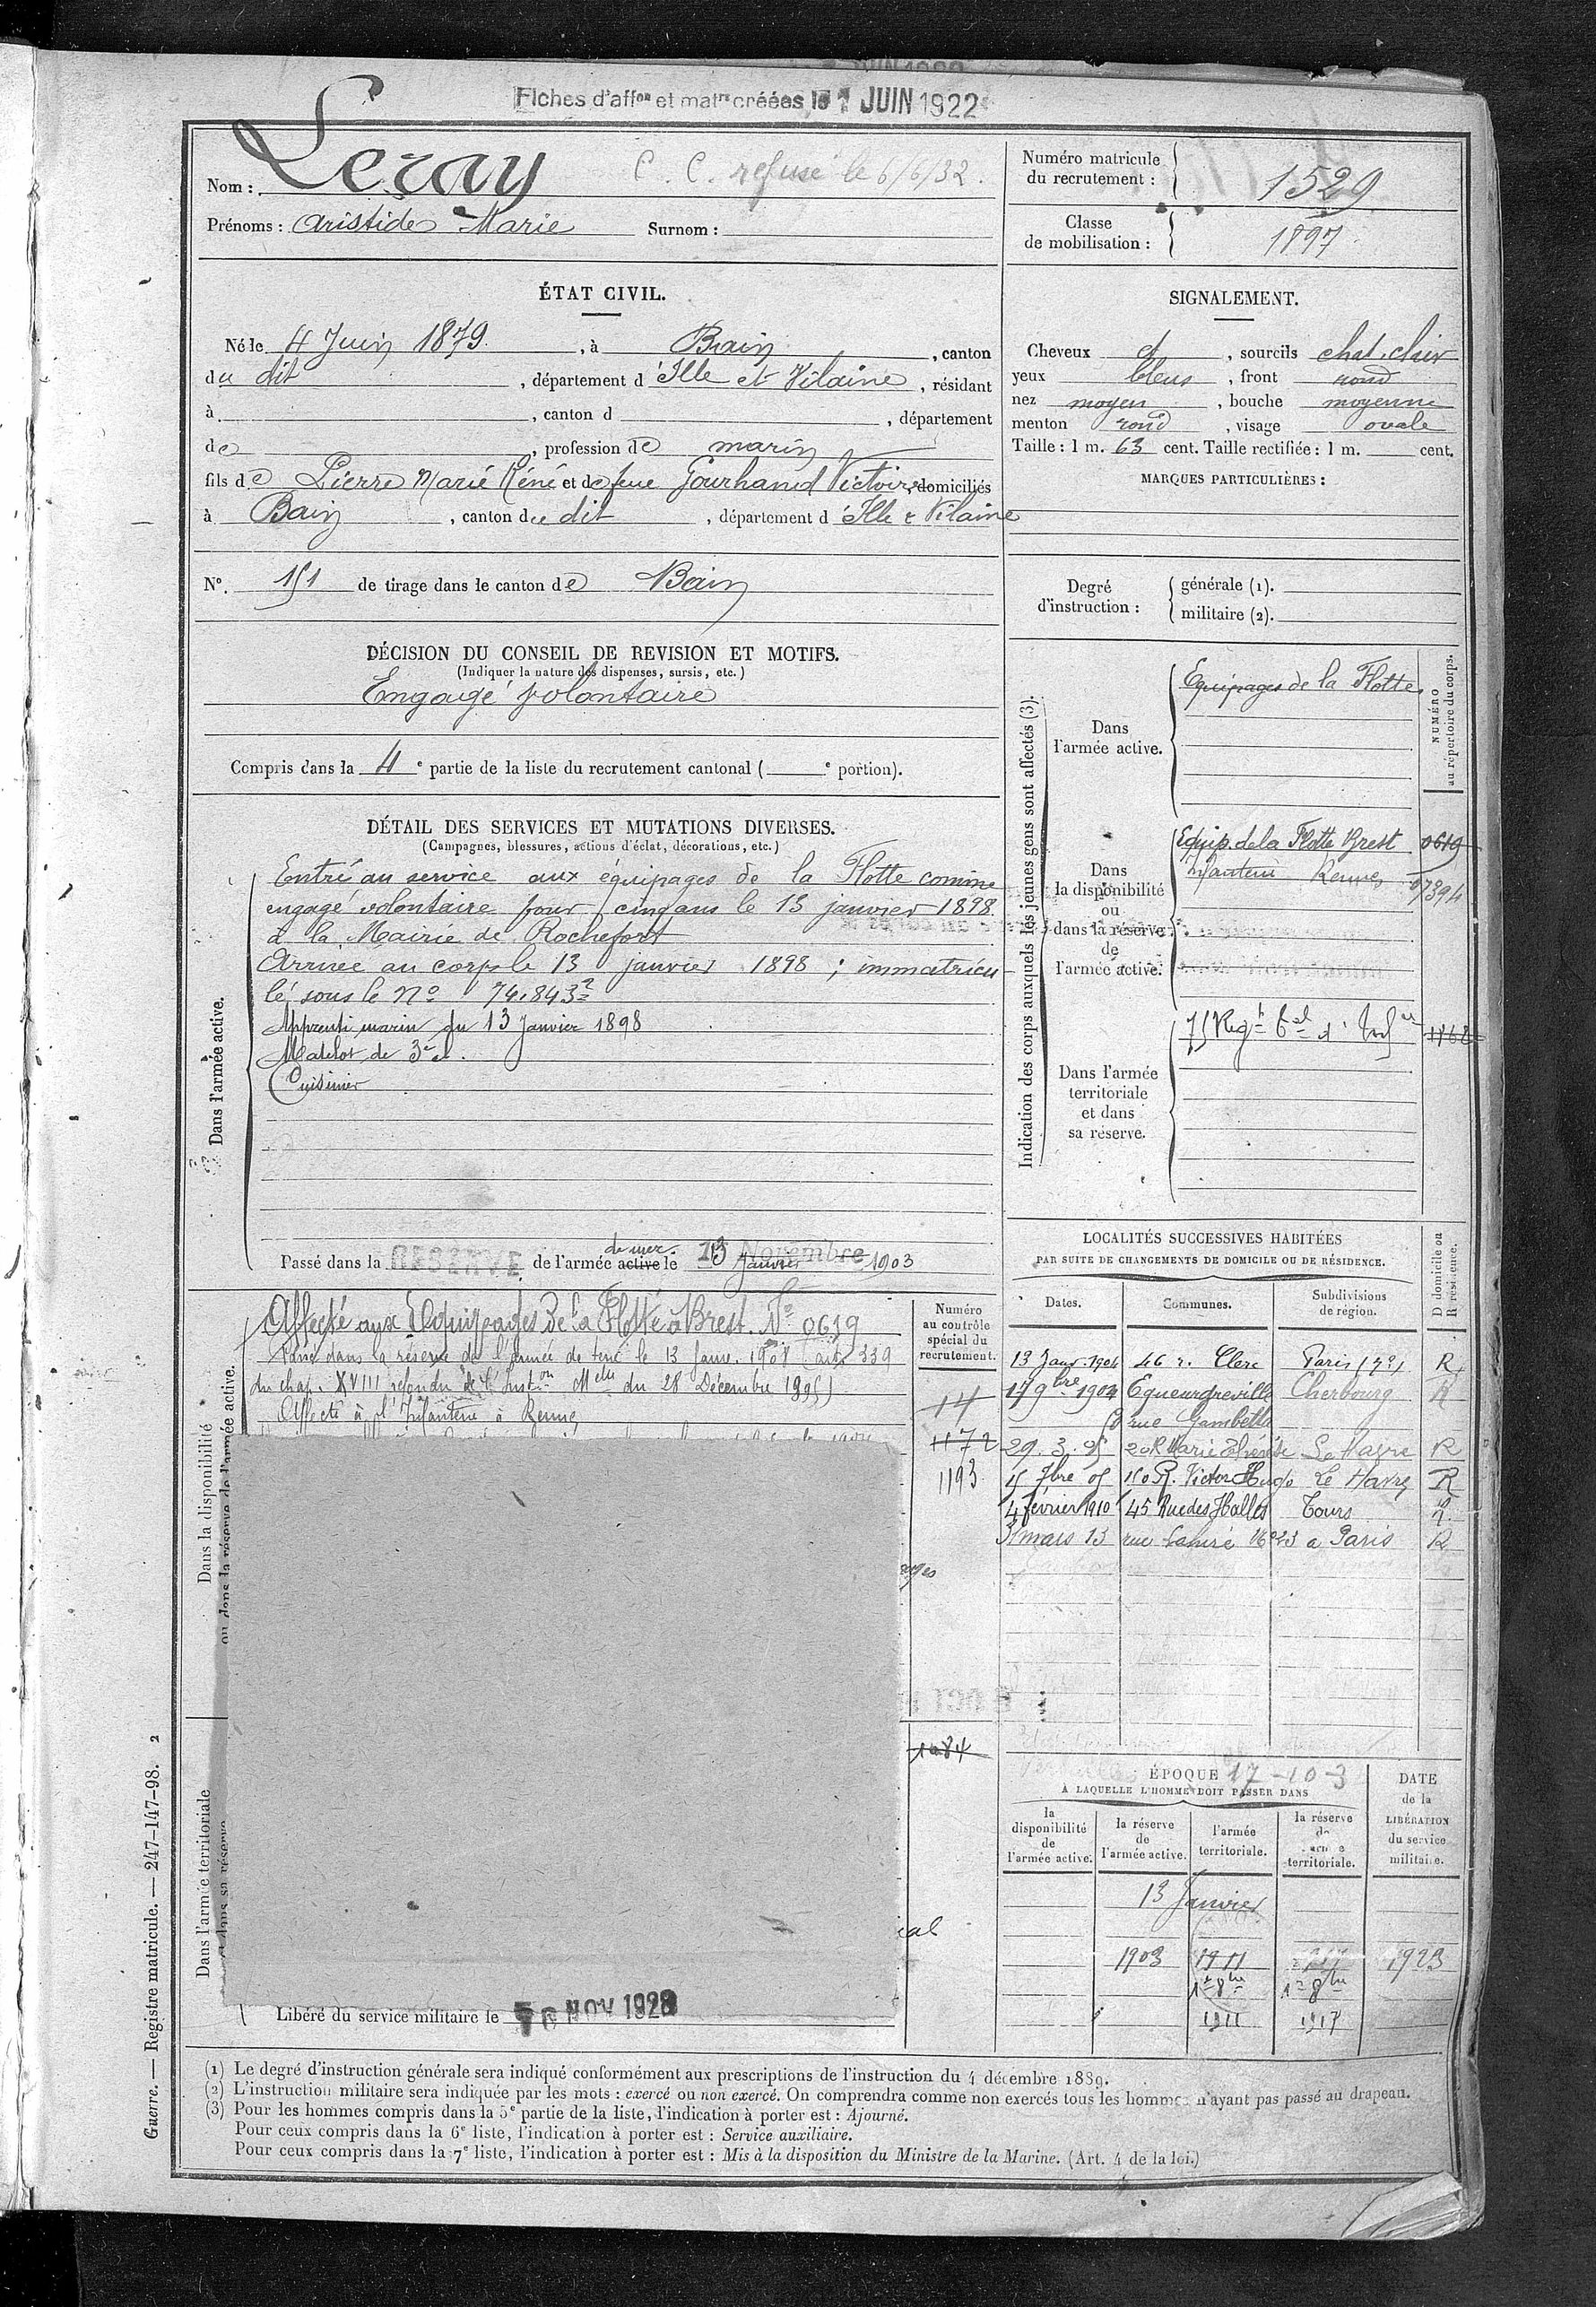 Fiches d'affon et matre créées le 7 JUIN 1922
Nom : Leray
C. C. refusé le 6/6/32.
Prénoms : Aristide Marie Surnom :
Numéro matricule du recrutement : 1529
Classe de mobilisation : 1897
ÉTAT CIVIL.
Né le 4 Juin 1879, à Bain, canton
du dit, département d'Ille et Vilaine, résidant
à , canton d , département
de , profession de marin
fils de Pierre Marie Réné et de feue Gourhand Victoire, domiciliés
à Bain, canton du dit, département d'Ille & Vilaine
N°. 151 de tirage dans le canton de Bain
SIGNALEMENT.
Cheveux et , sourcils chat. clair
yeux bleus , front rond
nez moyen , bouche moyenne
menton rond , visage ovale
Taille : 1 m. 63 cent. Taille rectifiée : 1 m. cent.
MARQUES PARTICULIÈRES :
Degré d'instruction : générale (1).
militaire (2).
DÉCISION DU CONSEIL DE REVISION ET MOTIFS.
(Indiquer la nature des dispenses, sursis, etc.)
Engagé volontaire
Compris dans la 4e partie de la liste du recrutement cantonal ( e portion).
DÉTAIL DES SERVICES ET MUTATIONS DIVERSES.
(Campagnes, blessures, actions d'éclat, décorations, etc.)
Dans l'armée active.
Entré au service aux équipages de la Flotte comme
engagé volontaire pour cinq ans le 13 janvier 1898
à la Mairie de Rochefort
Arrivé au corps le 13 janvier 1898 ; immatricu-
lé sous le No 74.843
Apprenti marin du 13 Janvier 1898
Matelot de 3e cl.
Cuisinier
Passé dans la RÉSERVE de l'armée active de mer le 13 Novembre Janvier 1903
Dans la disponibilité ou dans la réserve de l'armée active.
Affecté aux Equipages de la Flotte à Brest. No 0619
Passé dans la réserve de l'armée de terre le 13 Janv. 1908 (art. 339
du chap. XVIII refondu de l'Inston Melle du 28 Décembre 1895)
Affecté à l'Infanterie à Rennes
Numéro au contrôle spécial du recrutement.
14
1172
1193
1084
Dans l'armée territoriale et dans sa réserve
Libéré du service militaire le 10 NOV 1928
Indication des corps auxquels les jeunes gens sont affectés (3).
NUMÉRO au répertoire du corps.
Dans l'armée active.
Equipages de la Flotte
Dans la disponibilité ou dans la réserve de l'armée active.
Equip. de la Flotte Brest 0619
Infanterie Rennes 07394
Dans l'armée territoriale et dans sa réserve.
75 Regt tal d'Infie
LOCALITÉS SUCCESSIVES HABITÉES
PAR SUITE DE CHANGEMENTS DE DOMICILE OU DE RÉSIDENCE.
D domicile ou R résidence.
Dates. Communes. Subdivisions de région.
13 Janv. 1904 46 r. Clerc Paris (7e) R
17 9bre 1904 Equeurdreville Cherbourg R
rue Gambetta
29. 3. 05 20 R Marie Thérèse Le Havre R
15 7bre 05 150 R. Victor Hugo Le Havre R
4 février 1910 45 Rue des Halles Tours R
3 mars 13 rue No 23 à Paris R
ÉPOQUE
17-10-3
À LAQUELLE L'HOMME DOIT PASSER DANS
la disponibilité de l'armée active.
la réserve de l'armée active.
l'armée territoriale.
la réserve de l'armée territoriale.
DATE de la LIBÉRATION du service militaire.
13 Janvier
1903 1911 1917 1923
1er 8bre 1er 8bre
1911 1917
(1) Le degré d'instruction générale sera indiqué conformément aux prescriptions de l'instruction du 4 décembre 1889.
(2) L'instruction militaire sera indiquée par les mots : exercé ou non exercé. On comprendra comme non exercés tous les hommes n'ayant pas passé au drapeau.
(3) Pour les hommes compris dans la 5e partie de la liste, l'indication à porter est : Ajourné.
Pour ceux compris dans la 6e liste, l'indication à porter est : Service auxiliaire.
Pour ceux compris dans la 7e liste, l'indication à porter est : Mis à la disposition du Ministre de la Marine. (Art. 4 de la loi.)
Guerre. — Registre matricule. — 247-147-98. 2